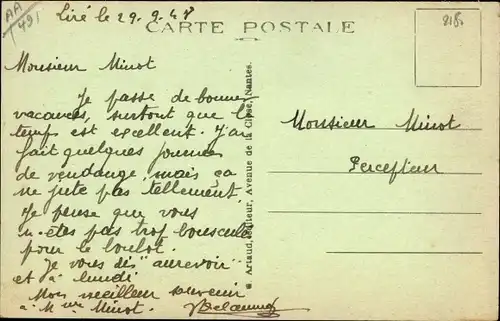 AA
491
Liré le 29.9.47
CARTE POSTALE
Monsieur Minot
Je passe de bonnes
vacances, surtout que le
temps est excellent. J'ai
fait quelques journées
de vendange, mais ça
ne jute pas tellement.
Je pense que vous
n'êtes pas trop bousculé
pour le boulot.
Je vous dis "aurevoir"
et à lundi
Mon meilleur souvenir
à Mme Minot.
Artaud, Editeur, Avenue de la Close, Nantes.
Monsieur Minot
Percepteur